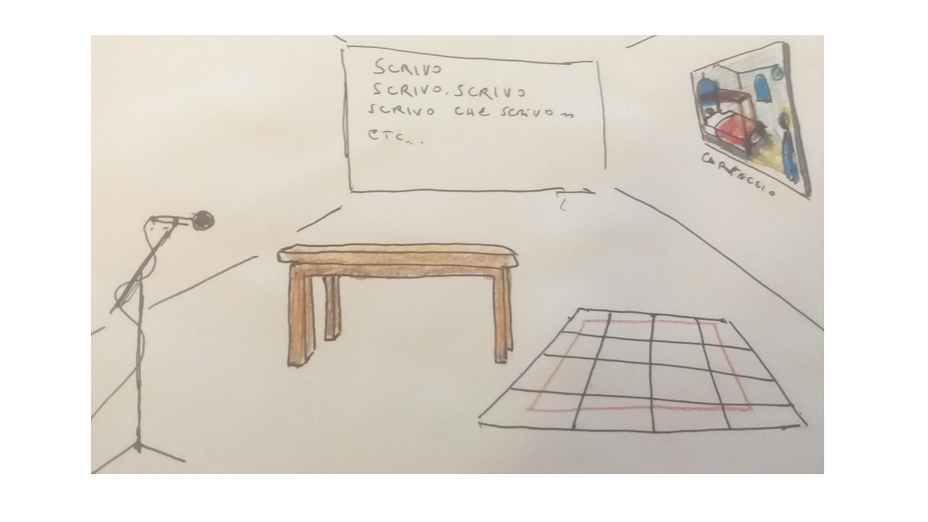 SCRIVO
SCRIVO, SCRIVO
SCRIVO CHE SCRIVO
ETC...
CARPACCIO